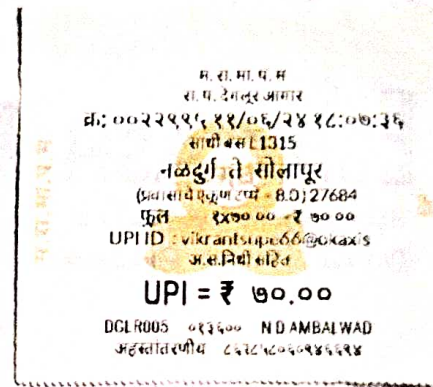 म. रा. मा. प. म
रा. प. देगलूर आगार
क्र: ००२२९९५ ११/०६/२४ १८:०७:३६
साधी बस L1315
नळदुर्ग ते सोलापूर
(प्रवासाचे एकूण टप्पे - 8.0) 27684
फूल १x७०.०० - ₹ ७०.००
UPI ID : vikrantsupe66@okaxis
अ.स.निधी सहित
UPI = ₹ ७०.००
DGLR005 ०१३६०० N D AMBALWAD
अहस्तांतरणीय